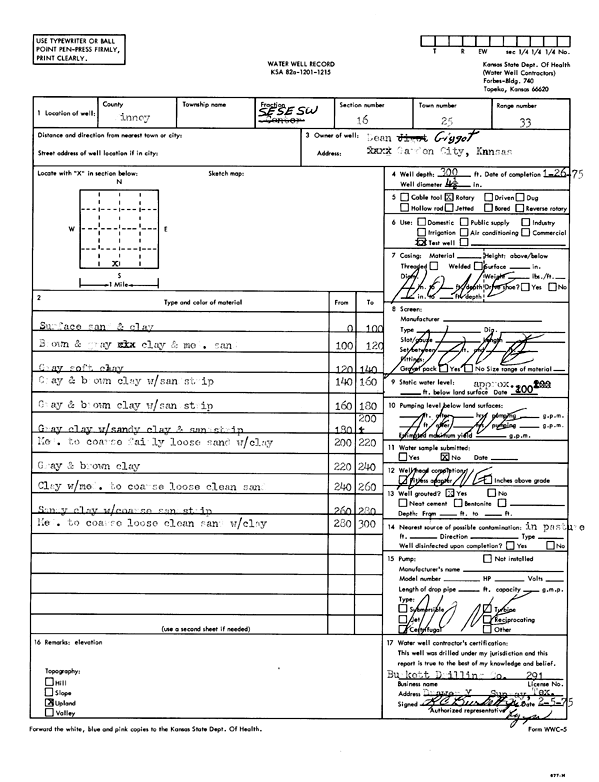 USE TYPEWRITER OR BALL
POINT PEN-PRESS FIRMLY,
PRINT CLEARLY.
T R EW sec 1/4 1/4 1/4 No.
WATER WELL RECORD
KSA 82a-1201-1215
Kansas State Dept. Of Health
(Water Well Contractors)
Forbes-Bldg. 740
Topeka, Kansas 66620
1 Location of well: County inney
Township name
Fraction SE SE SW Center
Section number 16
Town number 25
Range number 33
Distance and direction from nearest town or city:
Street address of well location if in city:
3 Owner of well: Lean Giggot
Address: xxxx Garden City, Kansas
Locate with "X" in section below:
Sketch map:
N
W E
X
S
1 Mile
4 Well depth: 300 ft. Date of completion 1-26-75
Well diameter 4½ in.
5 Cable tool X Rotary Driven Dug
Hollow rod Jetted Bored Reverse rotary
6 Use: Domestic Public supply Industry
Irrigation Air conditioning Commercial
XX Test well
7 Casing: Material Height: above/below
Threaded Welded Surface in.
Diam. Weight lbs./ft.
in. to ft. depth Drive shoe? Yes No
in. to ft. depth
8 Screen:
Manufacturer
Type Dia.
Slot/gauze Length
Set between ft. and
Fittings:
Gravel pack Yes No Size range of material
9 Static water level: approx.
ft. below land surface Date 100
10 Pumping level below land surfaces:
ft. after hrs. pumping g.p.m.
ft. after hrs. pumping g.p.m.
Estimated maximum yield g.p.m.
11 Water sample submitted:
Yes X No Date
12 Well head completion: NONE
Pitless adapter Inches above grade
13 Well grouted? X Yes No
Neat cement Bentonite
Depth: From ft. to ft.
14 Nearest source of possible contamination: in pasture
ft. Direction Type
Well disinfected upon completion? Yes No
15 Pump: Not installed
Manufacturer's name
Model number HP Volts
Length of drop pipe ft. capacity g.m.p.
Type:
Submersible Turbine
Jet Reciprocating
Centrifugal Other
2 Type and color of material From To
Surface san & clay 0 100
B own & gray xxx clay & me . san 100 120
Gray soft clay 120 140
Gray & b own clay w/san st ip 140 160
Gray & b own clay w/san st ip 160 180
Gray clay w/sandy clay & san st ip 180 200
Me . to coarse fairly loose sand w/clay 200 220
Gray & brown clay 220 240
Clay w/me . to coarse loose clean san 240 260
Sandy clay w/coa se san st ip 260 280
Me . to coarse loose clean san w/clay 280 300
(use a second sheet if needed)
16 Remarks: elevation
Topography:
Hill
Slope
X Upland
Valley
17 Water well contractor's certification:
This well was drilled under my jurisdiction and this
report is true to the best of my knowledge and belief.
Bu kett D illing Co. 291
Business name License No.
Address Tex.
Signed Date 2-5-75
Authorized representative
Forward the white, blue and pink copies to the Kansas State Dept. Of Health.
Form WWC-5